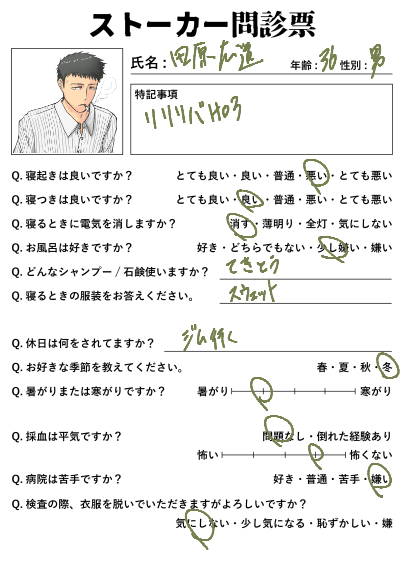 ストーカー問診票
氏名: 田原志道
年齢: 36 性別: 男
特記事項
リリリバH03
Q. 寝起きは良いですか? とても良い・良い・普通・悪い・とても悪い
Q. 寝つきは良いですか? とても良い・良い・普通・悪い・とても悪い
Q. 寝るときに電気を消しますか? 消す・薄明り・全灯・気にしない
Q. お風呂は好きですか? 好き・どちらでもない・少し嫌い・嫌い
Q. どんなシャンプー/石鹸使いますか? てきとう
Q. 寝るときの服装をお答えください。 スウェット
Q. 休日は何をされてますか? ジム行く
Q. お好きな季節を教えてください。 春・夏・秋・冬
Q. 暑がりまたは寒がりですか? 暑がり 寒がり
Q. 採血は平気ですか? 問題なし・倒れた経験あり
怖い 怖くない
Q. 病院は苦手ですか? 好き・普通・苦手・嫌い
Q. 検査の際、衣服を脱いでいただきますがよろしいですか?
気にしない・少し気になる・恥ずかしい・嫌